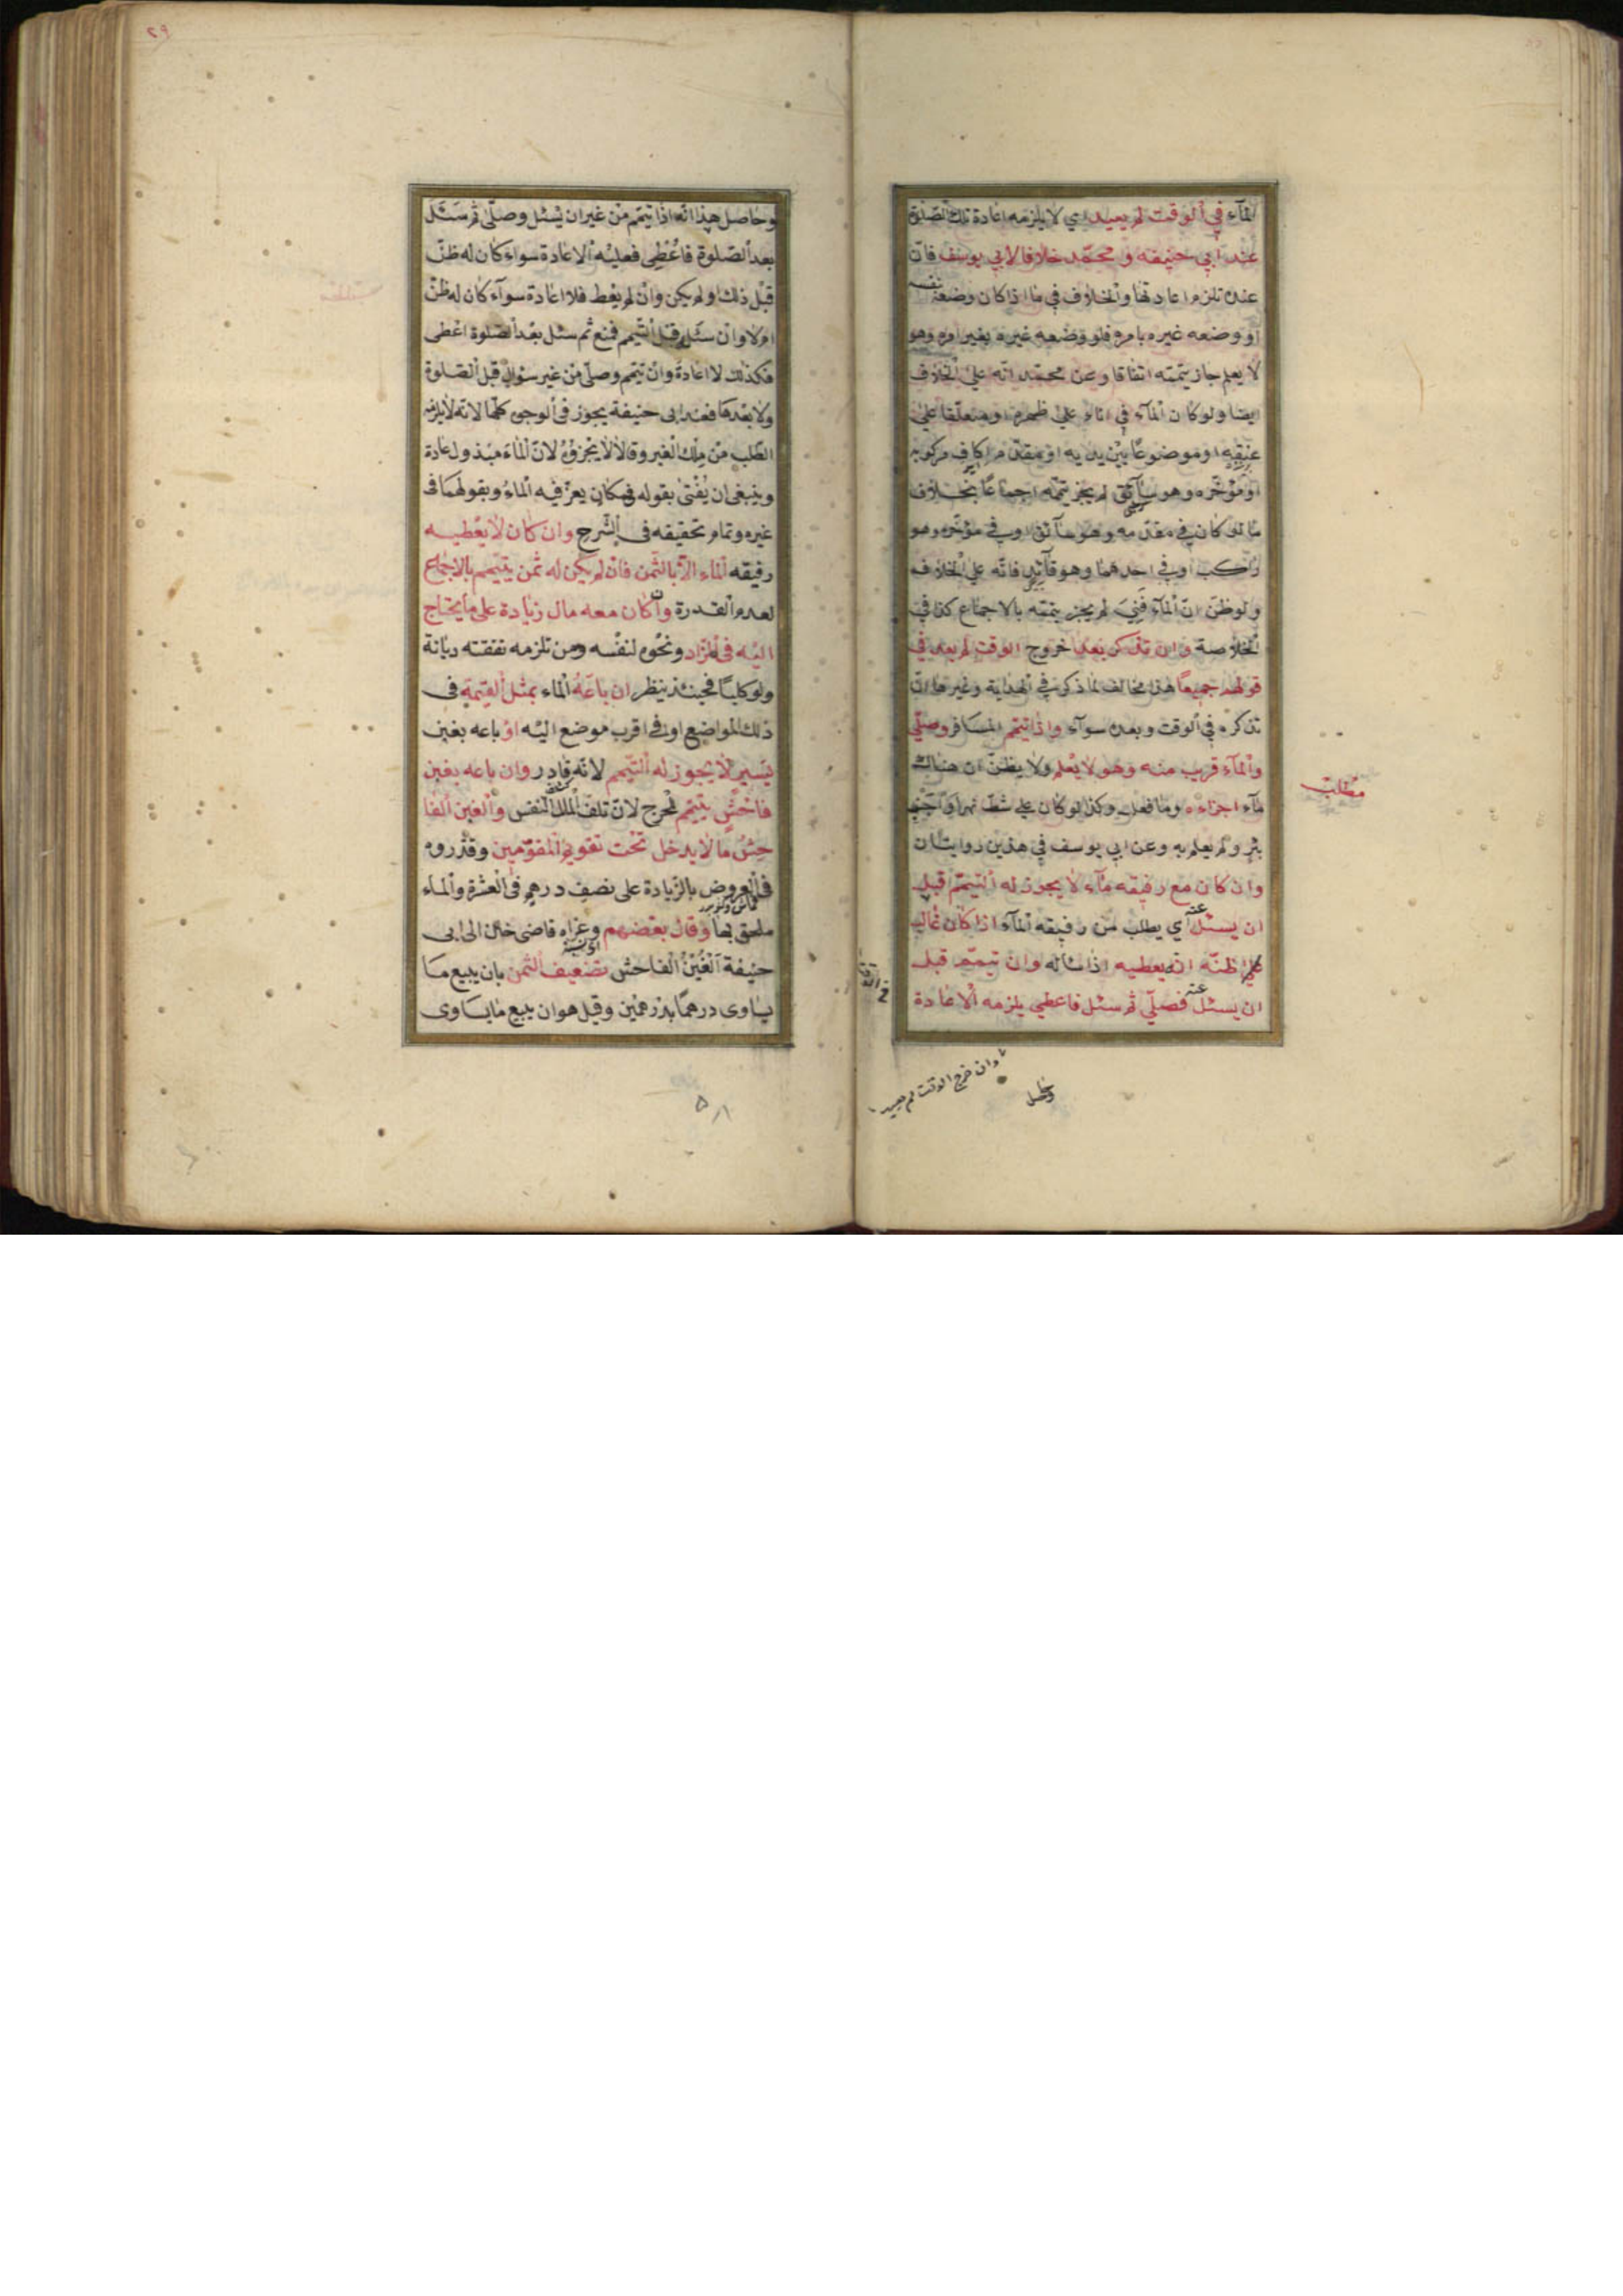 المآء في الوقت لم يعيد اي لا يلزمه اعادة تلك الصلوة
عند ابي حنيفه و محمّد خلافا لابي يوسف فانّ
عنده تلزم اعادتها والخلاف في ما اذا كان وضعه نفسه
او وضعه غيره بامره فلو وضعه غيره بغير امره وهو
لا يعلم جاز تيمّمه اتفاقا وعن محمّد انّه على الخلاف
ايضا ولو كان المآء في اناء علي ظهره او معلّقا علي
عنقه او موضوعًا بين يديه او مقدّم اكاف مركوبه
او مؤخّره وهو سآئق لم يجز تيمّمه اجماعًا بخلاف
ما لو كان في مقدّمه وهو سآئق او في مؤخّره وهو
راكب او في احدهما وهو قآئد فانّه علي الخلاف
ولو ظنّ انّ المآء فَنِيَ لم يجز تيمّمه بالاجماع كذا في
الخلاصة وان تذكر بعد خروج الوقت لم يعد في
قولهم جميعًا هذا مخالف لما ذكر في الهداية وغيرها انّ
تذكره في الوقت وبعده سوآء واذا تيمّم المسافر وصلّي
والمآء قريب منه وهو لا يعلم ولا يظنّ ان هناك
مآء اجزاءه وما فعل وكذا لو كان علي شطّ نهر او بجنب
بئر ولم يعلم به وعن ابي يوسف في هذين روايتان
وان كان مع رفيقه مآء لا يجوز له التيمّم قبل
ان يسئل عنه اي يطلب من رفيقه المآء اذا كان غالب
علي ظنّه انّه يعطيه اذا سئاله وان تيمّم قبل
ان يسئل عنه فصلّي ثم سئل فاعطي يلزمه الاعادة
مطلب
وان خرج الوقت لم يعيد
وحاصل
وحاصل هذا انّه اذا تيمّم من غير ان يسئل وصلّى ثم سئل
بعد الصّلوة فاُعْطِى فعليه الاعادة سواء كان له ظنّ
قبل ذلك او لم يكن وان لم يعط فلا اعادة سوآء كان له ظنّ
ام لا وان سئل قبل التّيمم فمنع ثم سئل بعد الصّلوة اعطى
فكذلك لا اعادة وان تيمّم وصلّى من غير سئوال قبل الصّلوة
ولا بعدها فعند ابى حنيفة يجوز فى الوجوه كلّها لانه لا يلزمه
الطّلب من مِلك الغير وقالا لا يجزؤُ لانّ الماءَ مبذول عادة
وينبغى ان يُفْتىٰ بقوله فى مكان يعزّ فيه الماءُ وبقولهما فى
غيره وتمام تحقيقه فى الشّرح وان كان لا يعطيه
رفيقه الماء الّا بالثّمن فان لم يكن له ثمن يتيمّم بالاجماع
لعدم القدرة وان كان معه مال زيادة على ما يحتاج
اليه فى الزّاد ونحوه لنفسه ومن تلزمه نفقته ديانة
ولو كلبًا فحينئذ ينظر ان باعَهُ الماء بمثل القيمة فى
ذلك المواضع او فى اقرب موضع اليه او باعه بغبن
يسير لا يجوز له التّيمم لانّه قادر وان باعه بغبن
فاحشٍ يتيمّم للحرج لانّ تلف الملك النفس والغبن الفا
حِشُ ما لا يدخل تحت تقويم المقوّمين وقدّروه
فى العروض بالزّيادة على نصف درهم فى العشرة والماء
ملحق بها وقال بعضهم وعزاه قاضى خان الى ابى
حنيفة الغُبْنُ الفاحش تضعيف الثّمن بان يبيع ما
يساوى درهمًا بدرهمين وقيل هو ان يبيع ما يساوى
٢٩